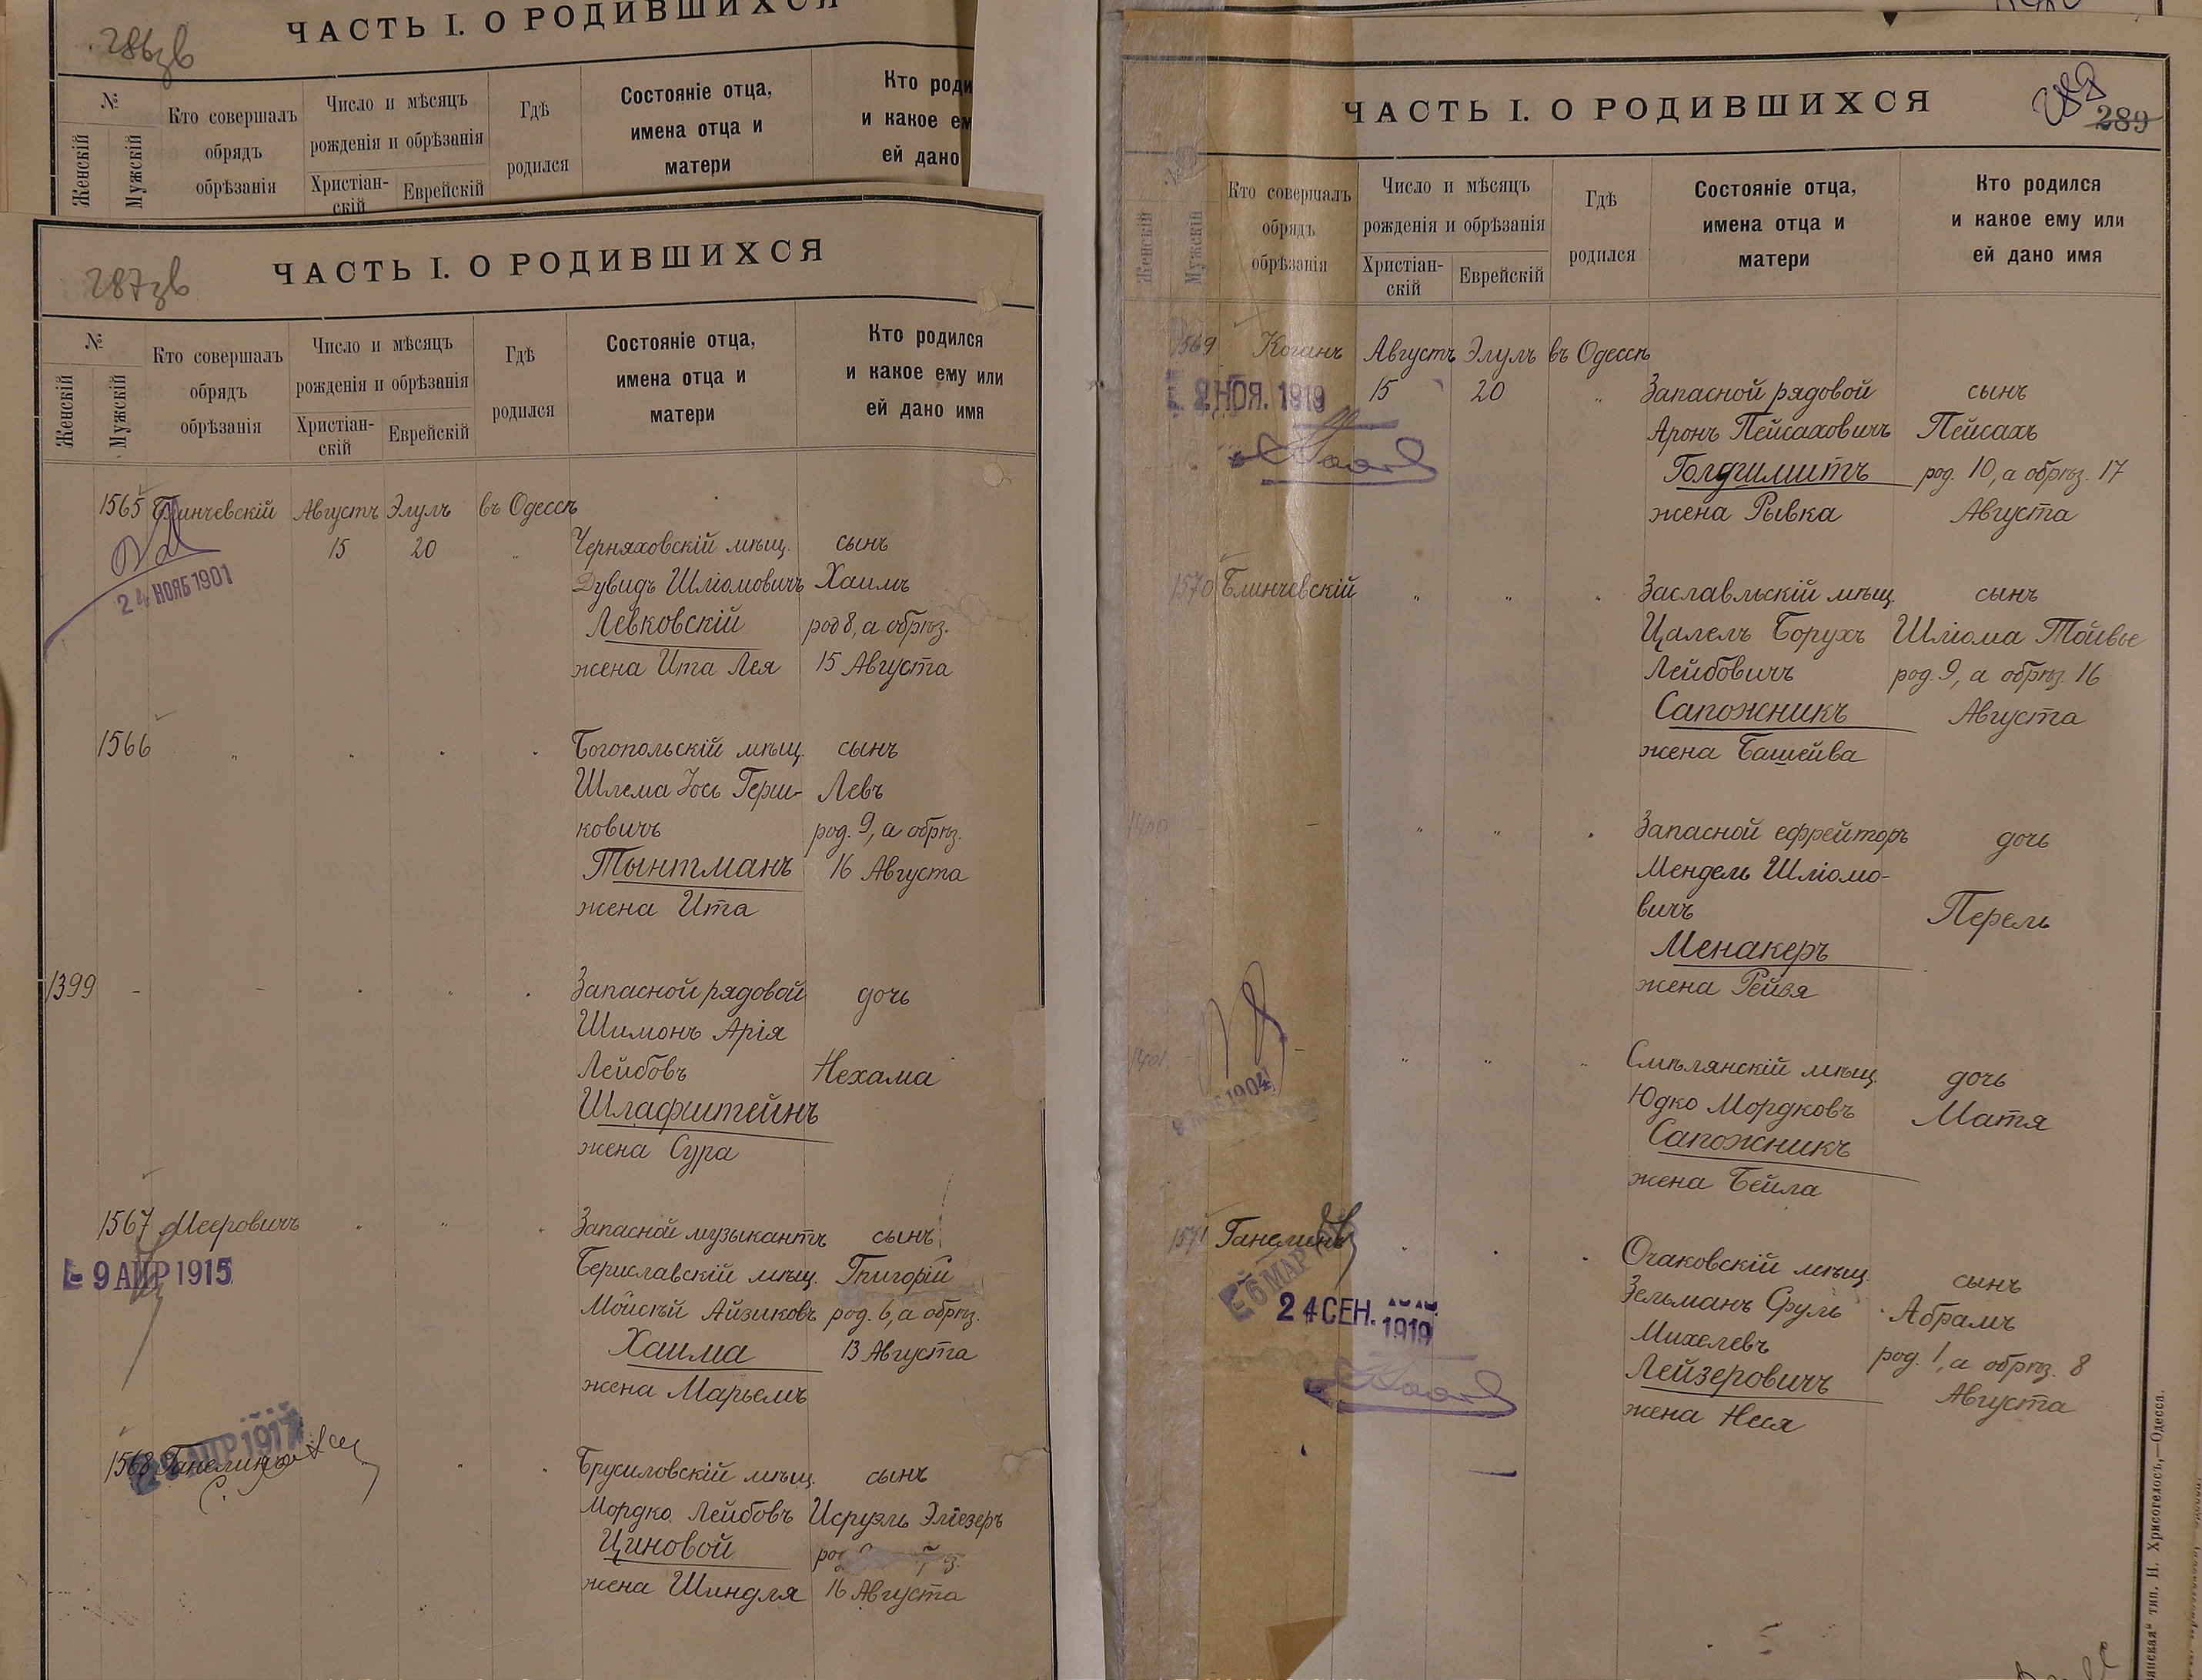 286зв
ЧАСТЬ I. О РОДИВШИХСЯ
№
Женскій
Мужскій
Кто совершалъ
обрядъ
обрѣзанія
Число и мѣсяцъ
рожденія и обрѣзанія
Христіан-
скій
Еврейскій
Гдѣ
родился
Состояніе отца,
имена отца и
матери
Кто роди
и какое ем
ей дано
287зв
ЧАСТЬ I. О РОДИВШИХСЯ
№
Женскій
Мужскій
Кто совершалъ
обрядъ
обрѣзанія
Число и мѣсяцъ
рожденія и обрѣзанія
Христіан-
скій
Еврейскій
Гдѣ
родился
Состояніе отца,
имена отца и
матери
Кто родился
и какое ему или
ей дано имя
1565 Блинчевскій Августъ Элулъ въ Одессѣ
15 20 " Черняховскій мѣщ. сынъ
24 НОЯБ 1901
Дувидъ Шліомовичъ Хаимъ
Левковскій род 8, а обрѣз.
жена Ита Лея 15 Августа
1566 " " " " Богопольскій мѣщ. сынъ
Шлема Іось Герш- Левъ
ковичъ род. 9, а обрѣз.
Тынтманъ 16 Августа
жена Ита
1399 - - " " " Запасной рядовой дочь
Шимонъ Арія
Лейбовъ Нехама
Шлафштейнъ
жена Сура
1567 Мееровичъ " " " Запасной музыкантъ сынъ
9 АПР 1915
Бериславскій мѣщ. Григорій
Мойсѣй Айзиковъ род. 6, а обрѣз.
Хаима 13 Августа
жена Марьемъ
1568 Ганелинъ " " Брусиловскій мѣщ. сынъ
АПР 1917
Мордко Лейбовъ Исруэль Эліезеръ
Циновой
жена Шиндля 16 Августа
ЧАСТЬ I. О РОДИВШИХСЯ
289
№
Женскій
Мужскій
Кто совершалъ
обрядъ
обрѣзанія
Число и мѣсяцъ
рожденія и обрѣзанія
Христіан-
скій
Еврейскій
Гдѣ
родился
Состояніе отца,
имена отца и
матери
Кто родился
и какое ему или
ей дано имя
1569 Коганъ Августъ Элулъ въ Одессѣ
15 20 " Запасной рядовой сынъ
2 НОЯ. 1919
Аронъ Пейсаховичъ Пейсахъ
Голдшмитъ род. 10, а обрѣз. 17
жена Рывка Августа
1570 Блинчевскій " " " Заславльскій мѣщ. сынъ
Цалель Борухъ Шліома Тойвье
Лейбовичъ род. 9, а обрѣз. 16
Сапожникъ Августа
жена Башейва
1400 - " " " Запасной ефрейторъ дочь
Мендель Шліомо-
вичъ Перель
Менакеръ
жена Рейзя
1401 - - " " " Смѣлянскій мѣщ. дочь
1904
Юдко Мордковъ Матя
Сапожникъ
жена Бейла
1571 Ганелинъ " " " Очаковскій мѣщ. сынъ
6 МАР
24 СЕН. 1919
Зельманъ Сруль Абрамъ
Михелевъ род. 1, а обрѣз. 8
Лейзеровичъ Августа
жена Неся
тип. И. Хрисогелосъ,—Одесса.